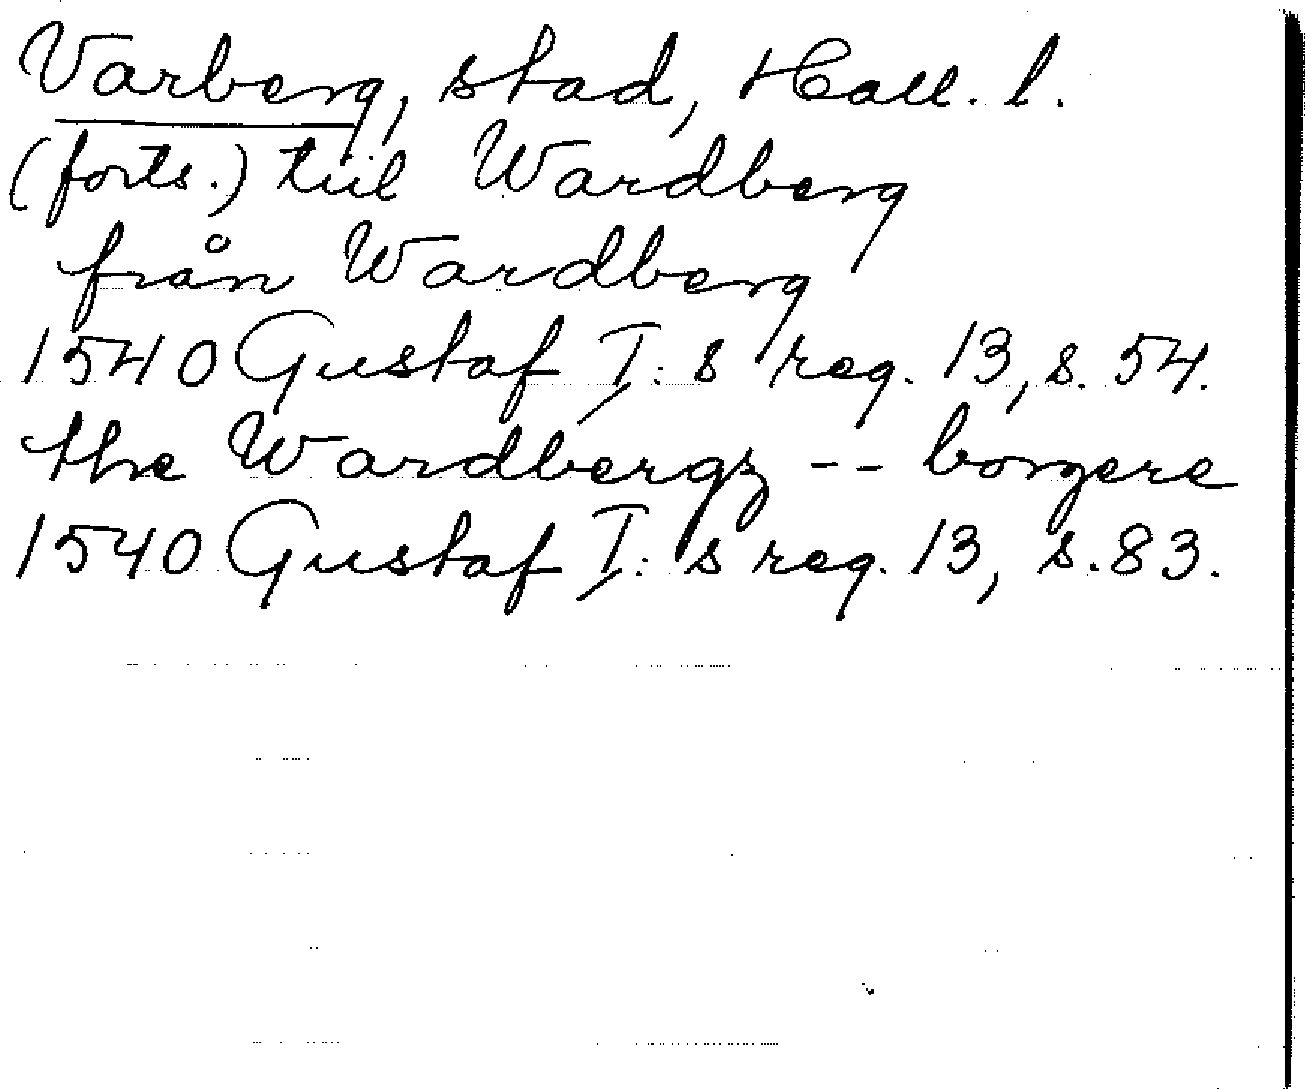 Varberg, stad, Hall. l.
(forts.) tiil Wardberg
från Wardberg
1540 Gustaf I:s reg. 13, s. 54.
the Wardbergz -- borgere
1540 Gustaf I:s reg. 13, s. 83.